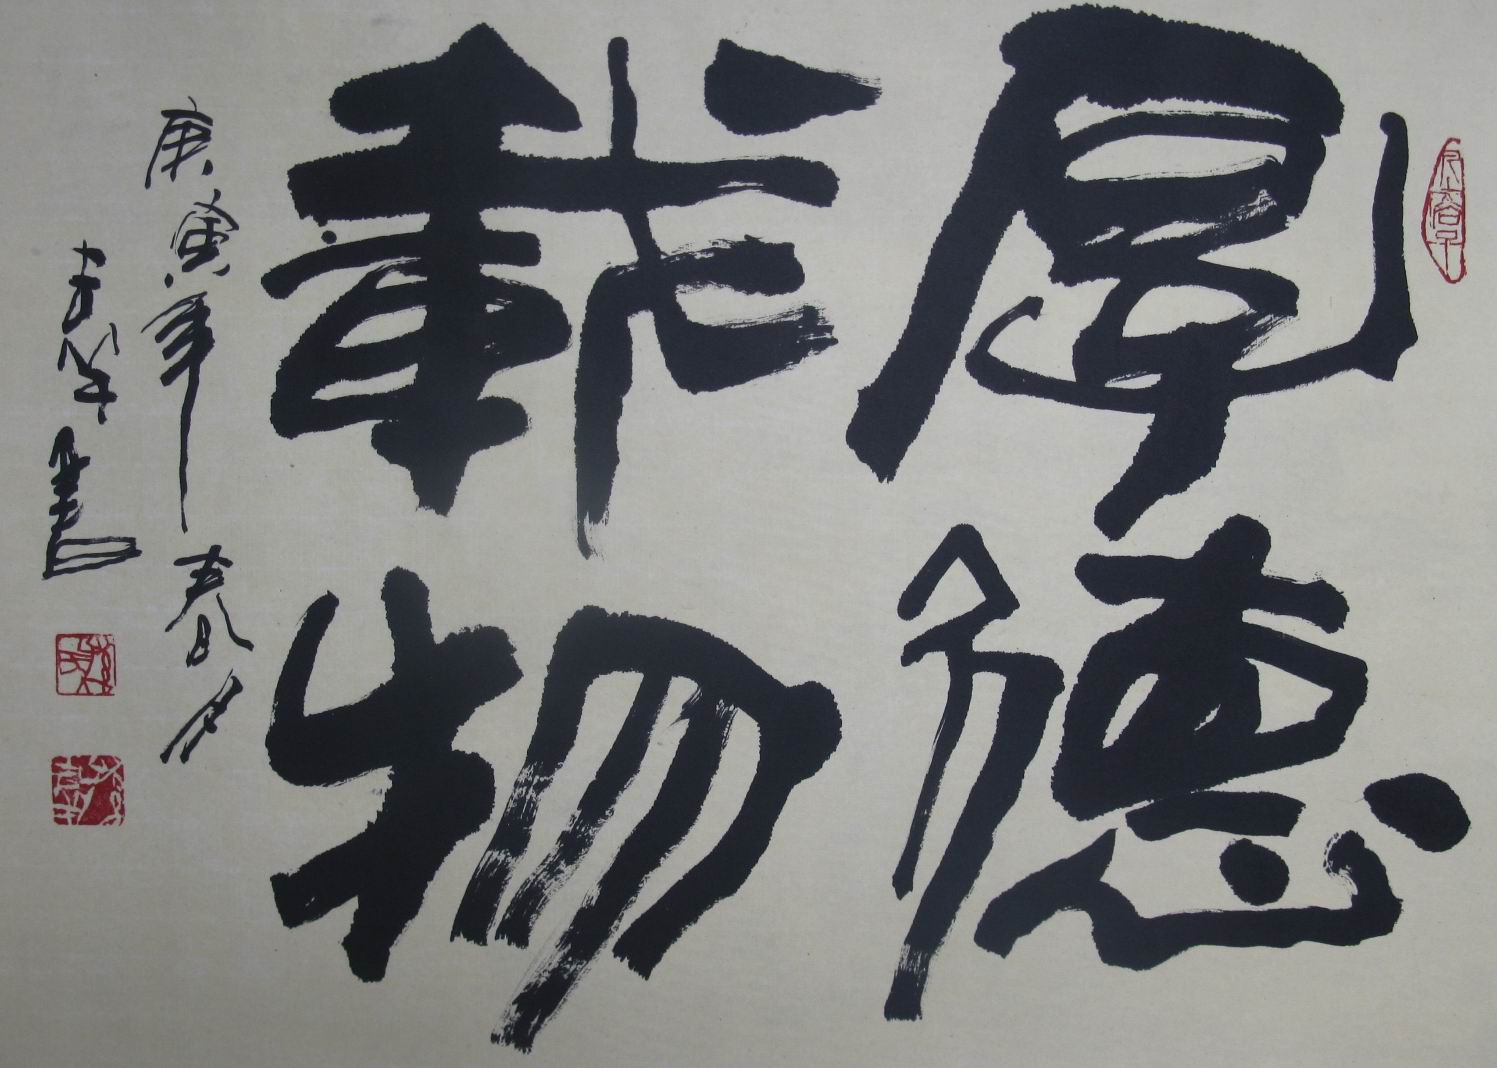 厚德
载物
庚寅年春月
书